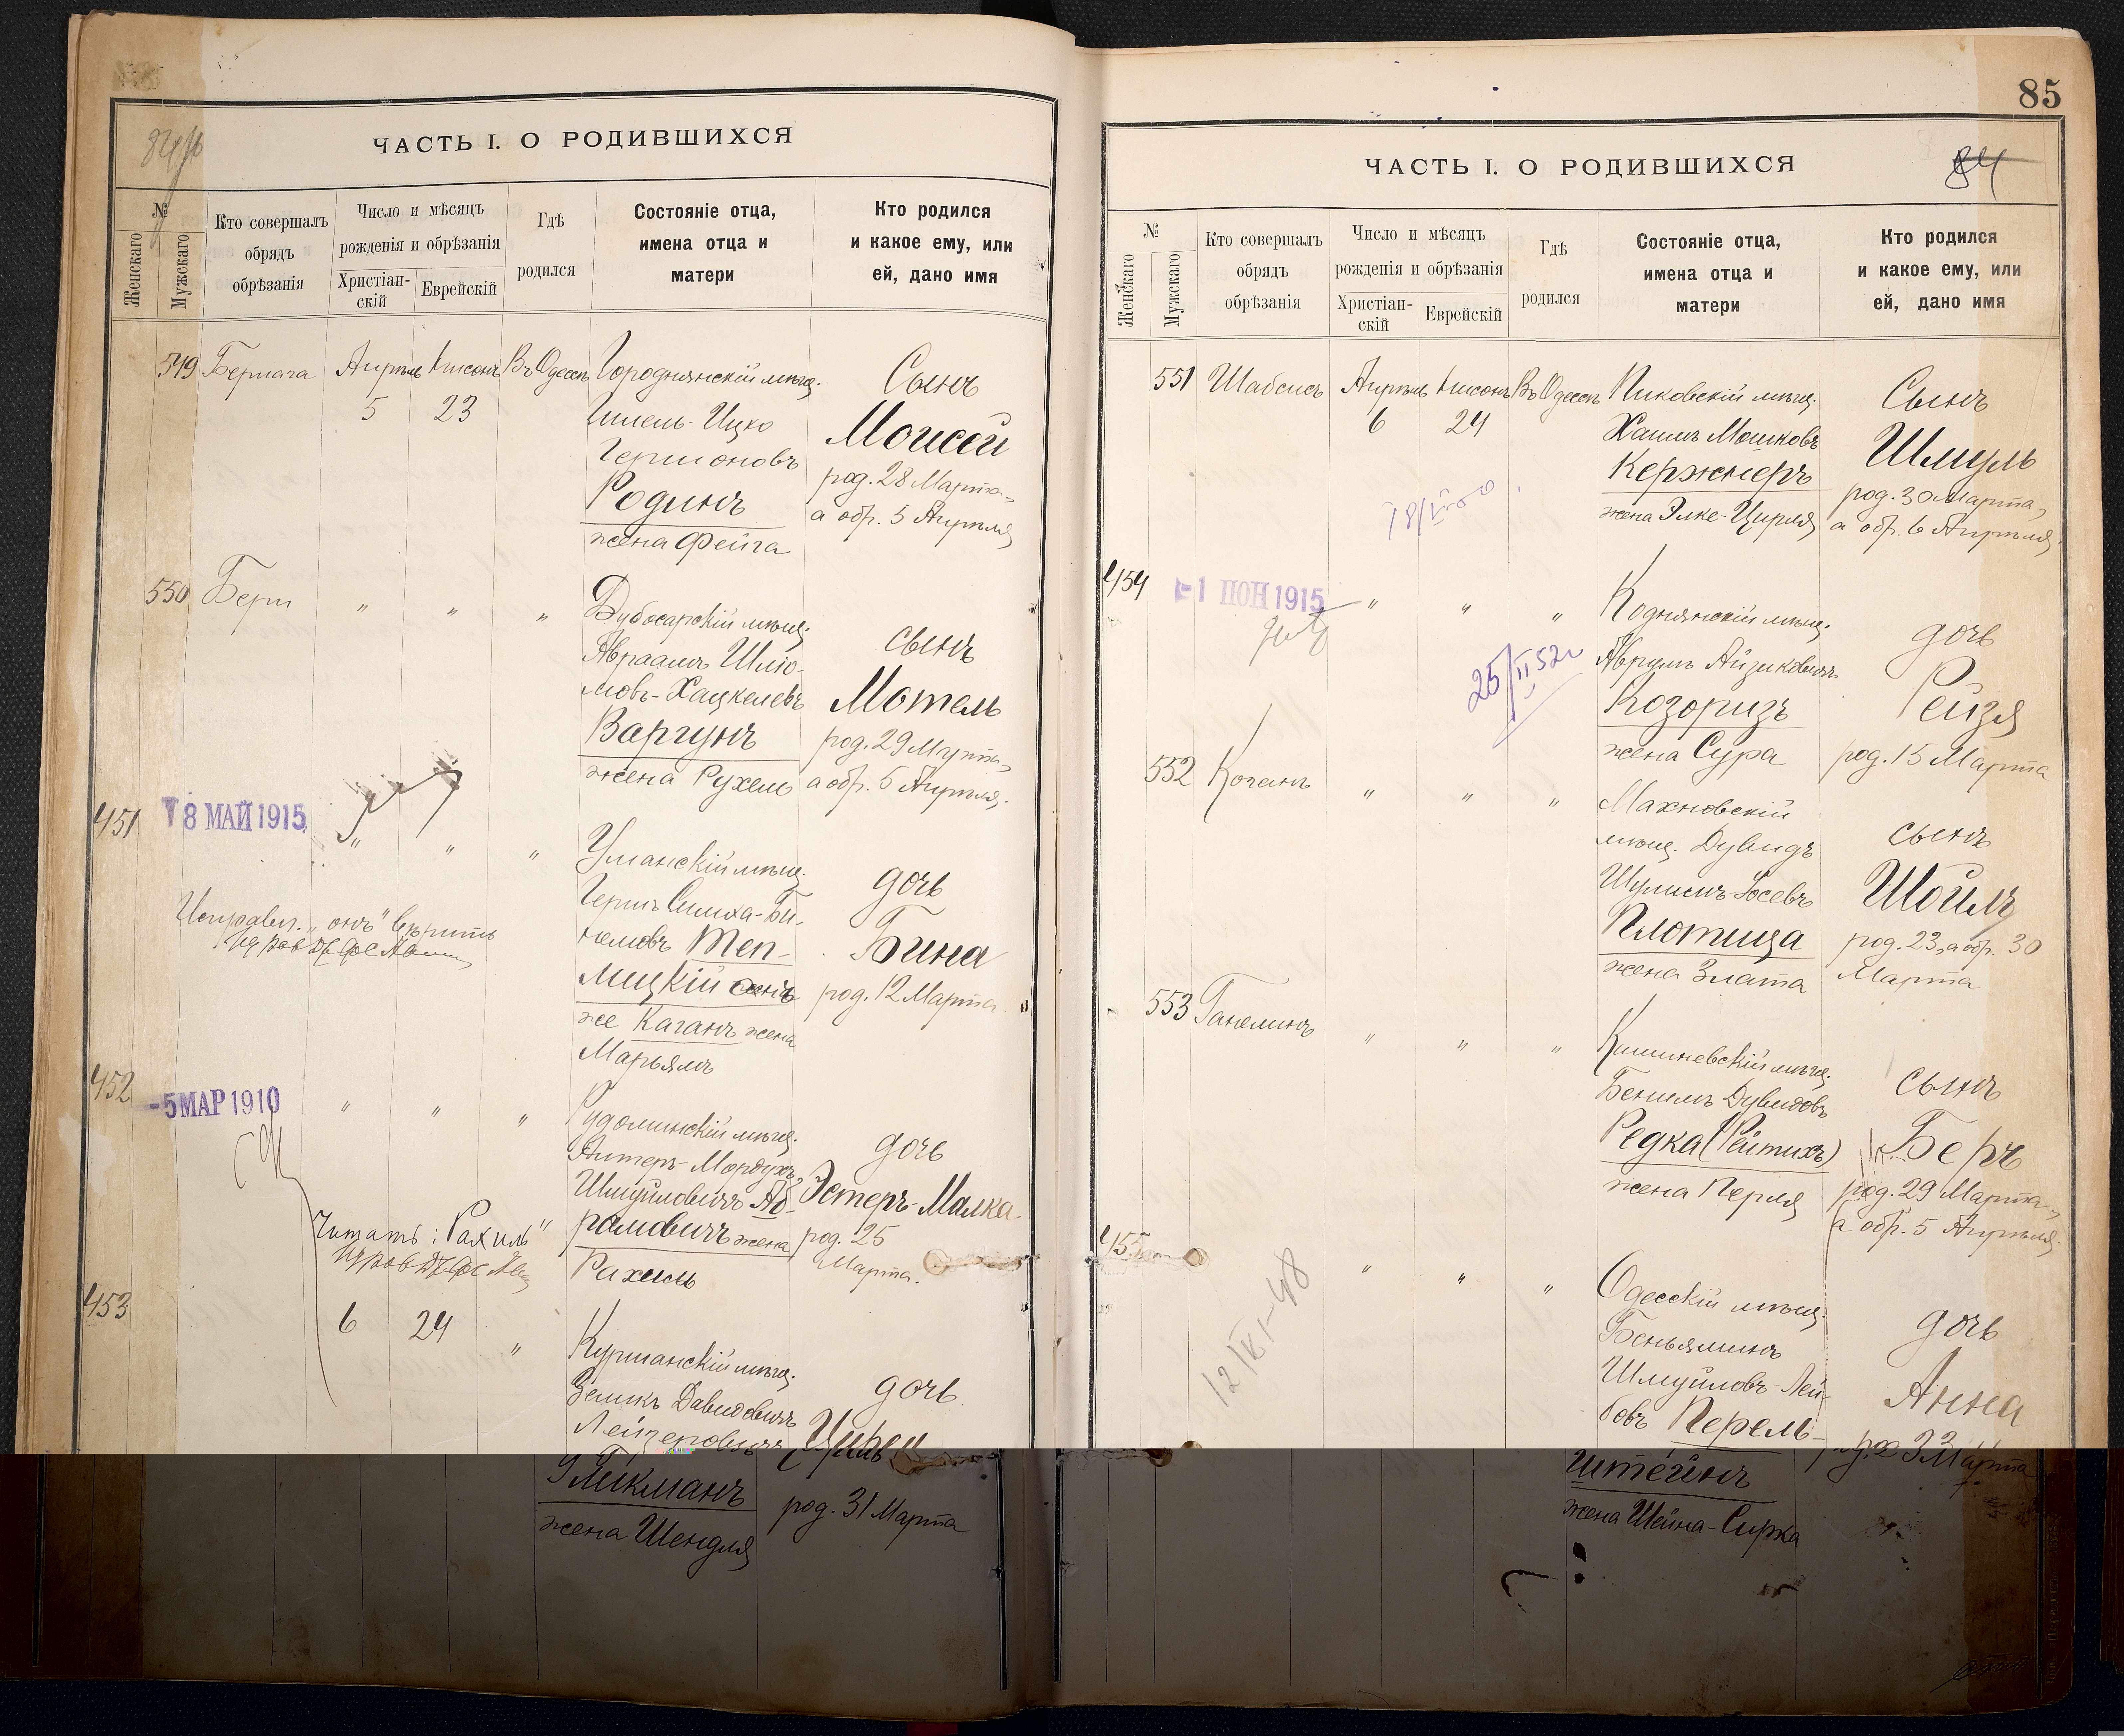 ЧАСТЬ I. О РОДИВШИХСЯ
№
Женскаго
Мужскаго
Кто совершалъ
обрядъ
обрѣзанія
Число и мѣсяцъ
рожденія и обрѣзанія
Христіан-
скій
Еврейскій
Гдѣ
родился
Состояніе отца,
имена отца и
матери
Кто родился
и какое ему, или
ей, дано имя
549 Апрѣль Нисонъ Въ Одессѣ Городнянскій мѣщ. Сынъ
5 23 Гилель-Ицко Моисей
род. 28 Марта,
Родинъ а обр. 5 Апрѣля
жена Фейга
550 Бери " " " Дубосарскій мѣщ.
Авраамъ Шліо- сынъ
мовъ-Хацкелевъ Мотель
Варгунъ род. 29 Марта,
жена Рухель а обр. 5 Апрѣля.
451 18 МАЙ 1915 " " " Уманскій мѣщ.
Гершъ Симха-Би- дочь
Исправл. „онъ" вѣрить
немовъ Теп- Бина
лицкій онъ род. 12 Марта
же Каганъ жена
Марьямъ
452 -5 МАР 1910 " " " Рудоминскій мѣщ.
Алтеръ-Мордухъ дочь
Шмуйловичъ Аб- Эстеръ-Малка
Читать: Рахиль"
рамовичъ жена род. 25
Рахиль Марта.
453 6 24 " мѣщ.
Зеликъ Давидовичъ дочь
Лейзеровичъ
Гликманъ род. 31 Марта
жена Шендля
85
84
ЧАСТЬ I. О РОДИВШИХСЯ
№
Женскаго
Мужскаго
Кто совершалъ
обрядъ
обрѣзанія
Число и мѣсяцъ
рожденія и обрѣзанія
Христіан-
скій
Еврейскій
Гдѣ
родился
Состояніе отца,
имена отца и
матери
Кто родился
и какое ему, или
ей, дано имя
551 Шабсисъ Апрѣль Нисонъ Въ Одессѣ Пиковскій мѣщ. Сынъ
6 24 Хаимъ Мошковъ Шмуль
Кержнеръ род. 30 Марта,
жена Элке-Цирля а обр. 6 Апрѣля
454 -1 ІЮН 1915 " " " Коднянскій мѣщ. дочь
25/II 52г
Аврумъ Айзиковичъ
Козоризъ Рейзя
жена Сура род. 15 Марта
552 Коганъ " " " Махновскій
мѣщ. Дувидъ сынъ
Шулимъ-Іосевъ Шоилъ
Плотица род. 23, а обр. 30
жена Злата Марта
553 Ганелинъ " " " Кишиневскій мѣщ.
Бенимъ Дувидовъ сынъ
Редка (Рейтихъ) Беръ
жена Перля род. 29 Марта,
а обр. 5 Апрѣля
455 " " " Одесскій мѣщ.
Беньяминъ дочь
Шмуйловъ-Лей-
бовъ Перель- Анна
штейнъ Марта
жена Шейна-Сирка